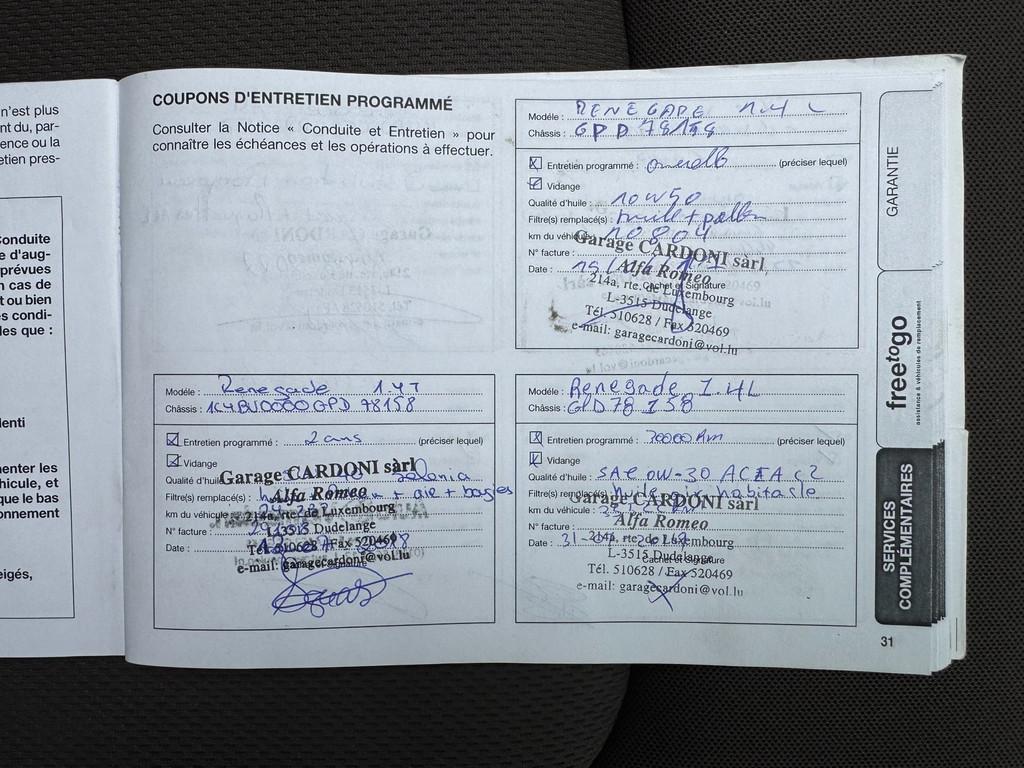 n'est plus
nt du, par-
ence ou la
etien pres-
Conduite
e d'aug-
prévues
n cas de
t ou bien
s condi-
les que :
lenti
nenter les
hicule, et
que le bas
onnement
eigés,
COUPONS D'ENTRETIEN PROGRAMMÉ
Consulter la Notice « Conduite et Entretien » pour
connaître les échéances et les opérations à effectuer.
Modéle : RENEGADE 1.4 L
Châssis : GPD 78158
Entretien programmé : (préciser lequel)
Vidange
Qualité d'huile : 10W50
Filtre(s) remplacé(s) : huile + pollen
km du véhicule : 10804
N° facture :
Date :
Cachet et Signature
Garage CARDONI sàrl
Alfa Romeo
214a, rte. de Luxembourg
L-3515 Dudelange
Tél. 510628 / Fax 520469
e-mail: garagecardoni@vol.lu
Modéle : Renegade 1.4T
Châssis : 1C4BU0000GPD 78158
Entretien programmé : 2 ans (préciser lequel)
Vidange
Qualité d'huile : Selenia
Filtre(s) remplacé(s) : + air + bogies
km du véhicule :
N° facture :
Date :
Garage CARDONI sàrl
Alfa Romeo
214a, rte. de Luxembourg
L-3515 Dudelange
Tél. 510628 / Fax 520469
e-mail: garagecardoni@vol.lu
Modéle : Renegade 1.4L
Châssis : GPD 78158
Entretien programmé : 30000 Km (préciser lequel)
Vidange
Qualité d'huile : SAE 0W-30 ACEA C2
Filtre(s) remplacé(s) : huile habitacle
km du véhicule :
N° facture :
Date : 31-
Cachet et Signature
Garage CARDONI sàrl
Alfa Romeo
214a, rte. de Luxembourg
L-3515 Dudelange
Tél. 510628 / Fax 520469
e-mail: garagecardoni@vol.lu
GARANTIE
freetogo
assistance & véhicules de remplacement
SERVICES
COMPLÉMENTAIRES
31